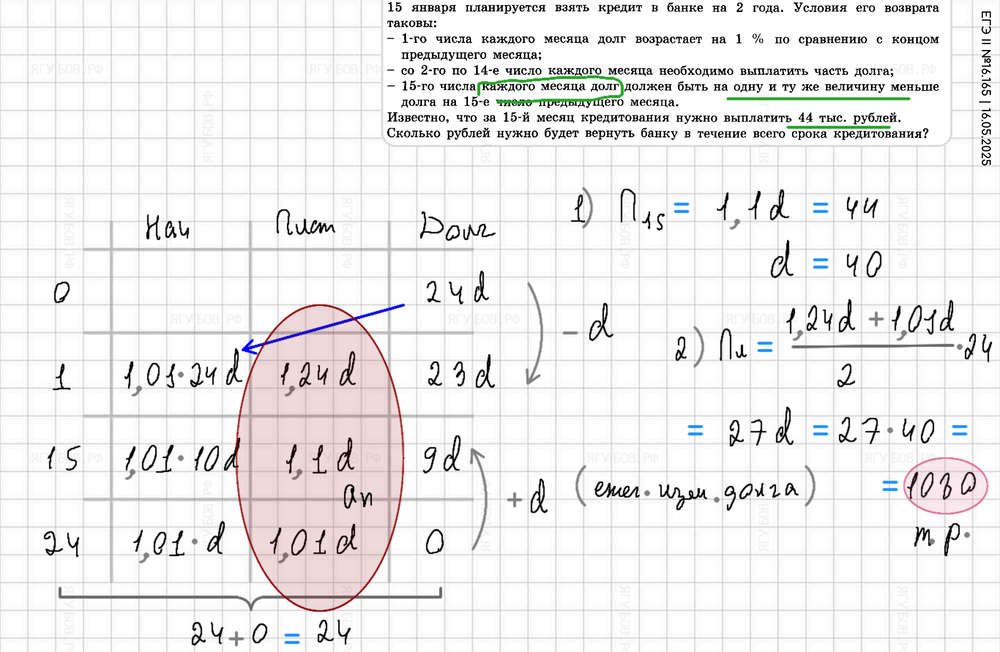 15 января планируется взять кредит в банке на 2 года. Условия его возврата
таковы:
– 1-го числа каждого месяца долг возрастает на 1 % по сравнению с концом
предыдущего месяца;
– со 2-го по 14-е число каждого месяца необходимо выплатить часть долга;
– 15-го числа каждого месяца долг должен быть на одну и ту же величину меньше
долга на 15-е число предыдущего месяца.
Известно, что за 15-й месяц кредитования нужно выплатить 44 тыс. рублей.
Сколько рублей нужно будет вернуть банку в течение всего срока кредитования?
ЕГЭ II №16.165 | 16.05.2025
Нач Плат Долг
0 24d
1 1,01·24d 1,24d 23d
15 1,01·10d 1,1d 9d
an
24 1,01·d 1,01d 0
24+0 = 24
– d
+ d
1) П15 = 1,1d = 44
d = 40
2) Пл = (1,24d + 1,01d)/2 · 24
= 27d = 27·40 =
(ежег. изм. долга)
= 1080
т.р.
ЯГУБОВ.РФ